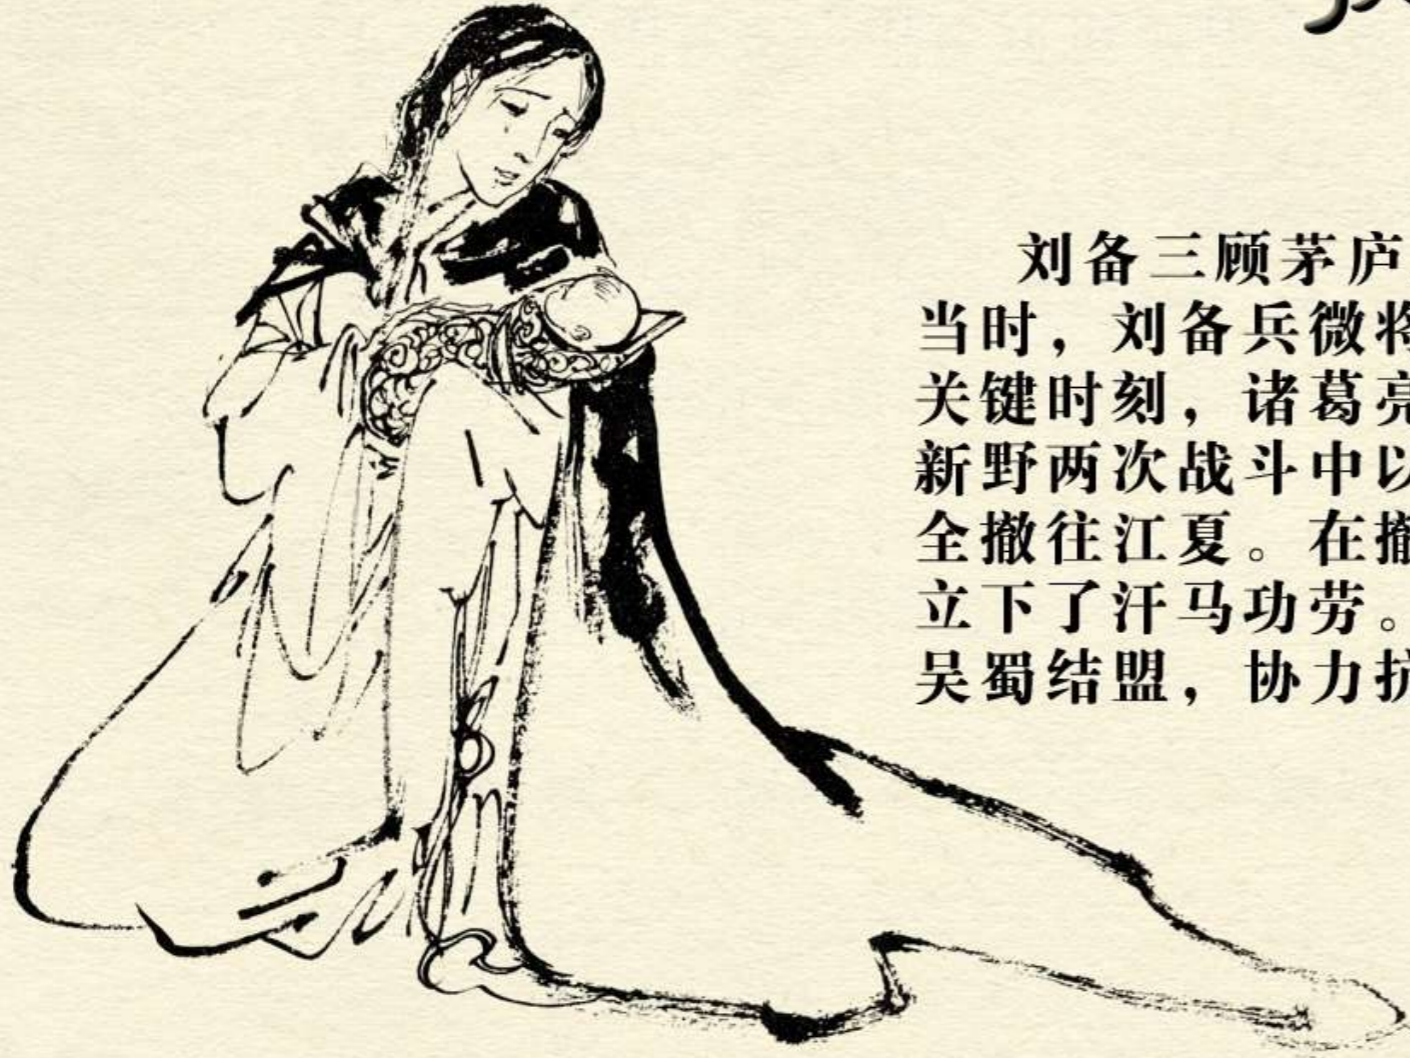 刘备三顾茅庐
当时，刘备兵微将
关键时刻，诸葛亮
新野两次战斗中以
全撤往江夏。在撤
立下了汗马功劳。
吴蜀结盟，协力抗